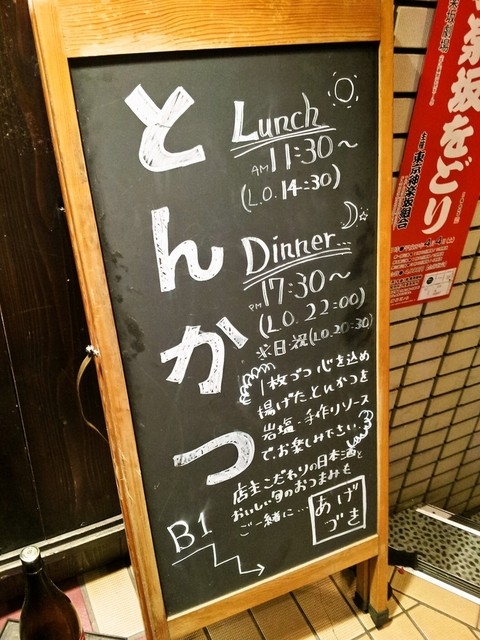 とんかつ
Lunch
AM 11:30～
(L.O. 14:30)
Dinner...
PM 17:30～
(L.O. 22:00)
※日・祝(L.O. 20:30)
1枚づつ心を込め
揚げたとんかつを
岩塩・手作りソース
でお楽しみ下さい。
店主こだわりの日本酒と
おいしい旬のおつまみも
ご一緒に…
あげ
づき
B1
楽坂をどり
主催 東京神楽坂組合